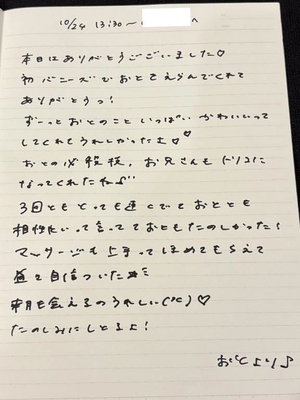 10/24 13:30〜 へ
本日はありがとうございました♡
初バニーズでおとをえらんでくれて
ありがとうっ!
ずーっとおとのこといっぱいかわいいって
してくれてうれしかったよ♡♡
おとの必殺技、お兄さんもトリコに
なってくれたね♪
3回ともとっても
相性いいって言っておともたのしかった!
マッサージも上手ってほめてもらえて
自信ついた
来月も会えるのうれしい ♡
たのしみにしとるよ!
おとより♪